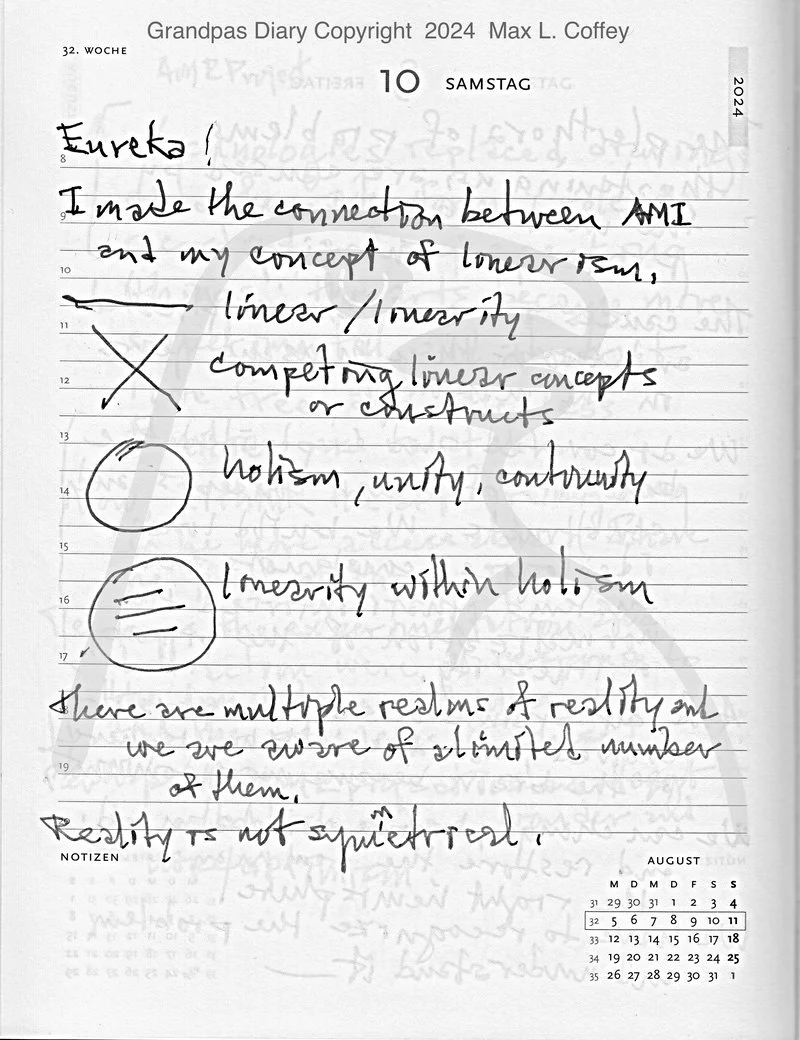 Grandpas Diary Copyright 2024 Max L. Coffey
32. WOCHE
10 SAMSTAG
2024
Eureka!
8
I made the connection between AMI
9
and my concept of linearism.
10
linear / linearity
11
competing linear concepts
12
or constructs
13
holism, unity, continuity
14
15
linearity within holism
16
17
there are multiple realms of reality and
we are aware of a limited number
19
of them.
Reality is not symmetrical.
NOTIZEN
AUGUST
M D M D F S S
31 29 30 31 1 2 3 4
32 5 6 7 8 9 10 11
33 12 13 14 15 16 17 18
34 19 20 21 22 23 24 25
35 26 27 28 29 30 31 1